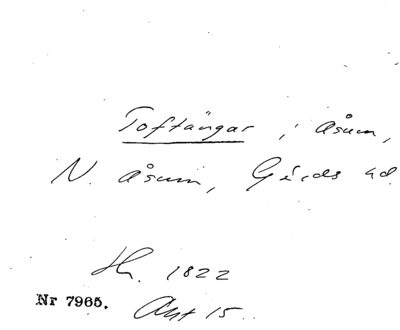 Toftängar, i Åsum,
N. Åsum, Gärds hd.
Hr. 1822
Nr 7965. Akt 15.